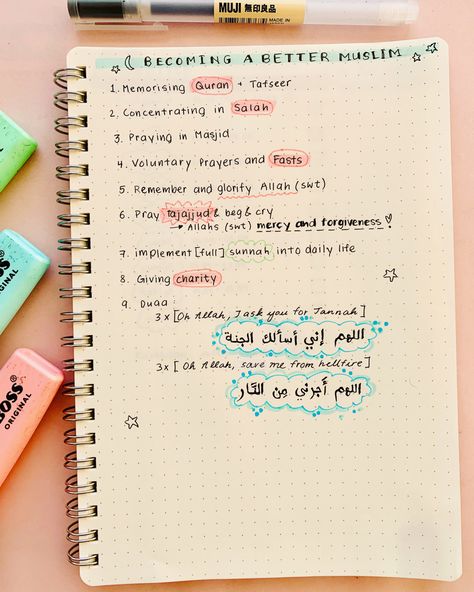 MUJI 無印良品
MADE IN
BECOMING A BETTER MUSLIM
1. Memorising Quran + Tafseer
2. Concentrating in Salah
3. Praying in Masjid
4. Voluntary Prayers and Fasts
5. Remember and glorify Allah (swt)
6. Pray Tajajjud & beg & cry
Allahs (swt) mercy and forgiveness!
7. implement [full] sunnah into daily life
8. Giving charity
9. Duaa:
3x [Oh Allah, I ask you for Jannah]
اللهم إني أسألك الجنة
3x [Oh Allah, save me from hellfire]
اللهم أجرني مِن النَّار
BOSS
ORIGINAL
BOSS
ORIGINAL